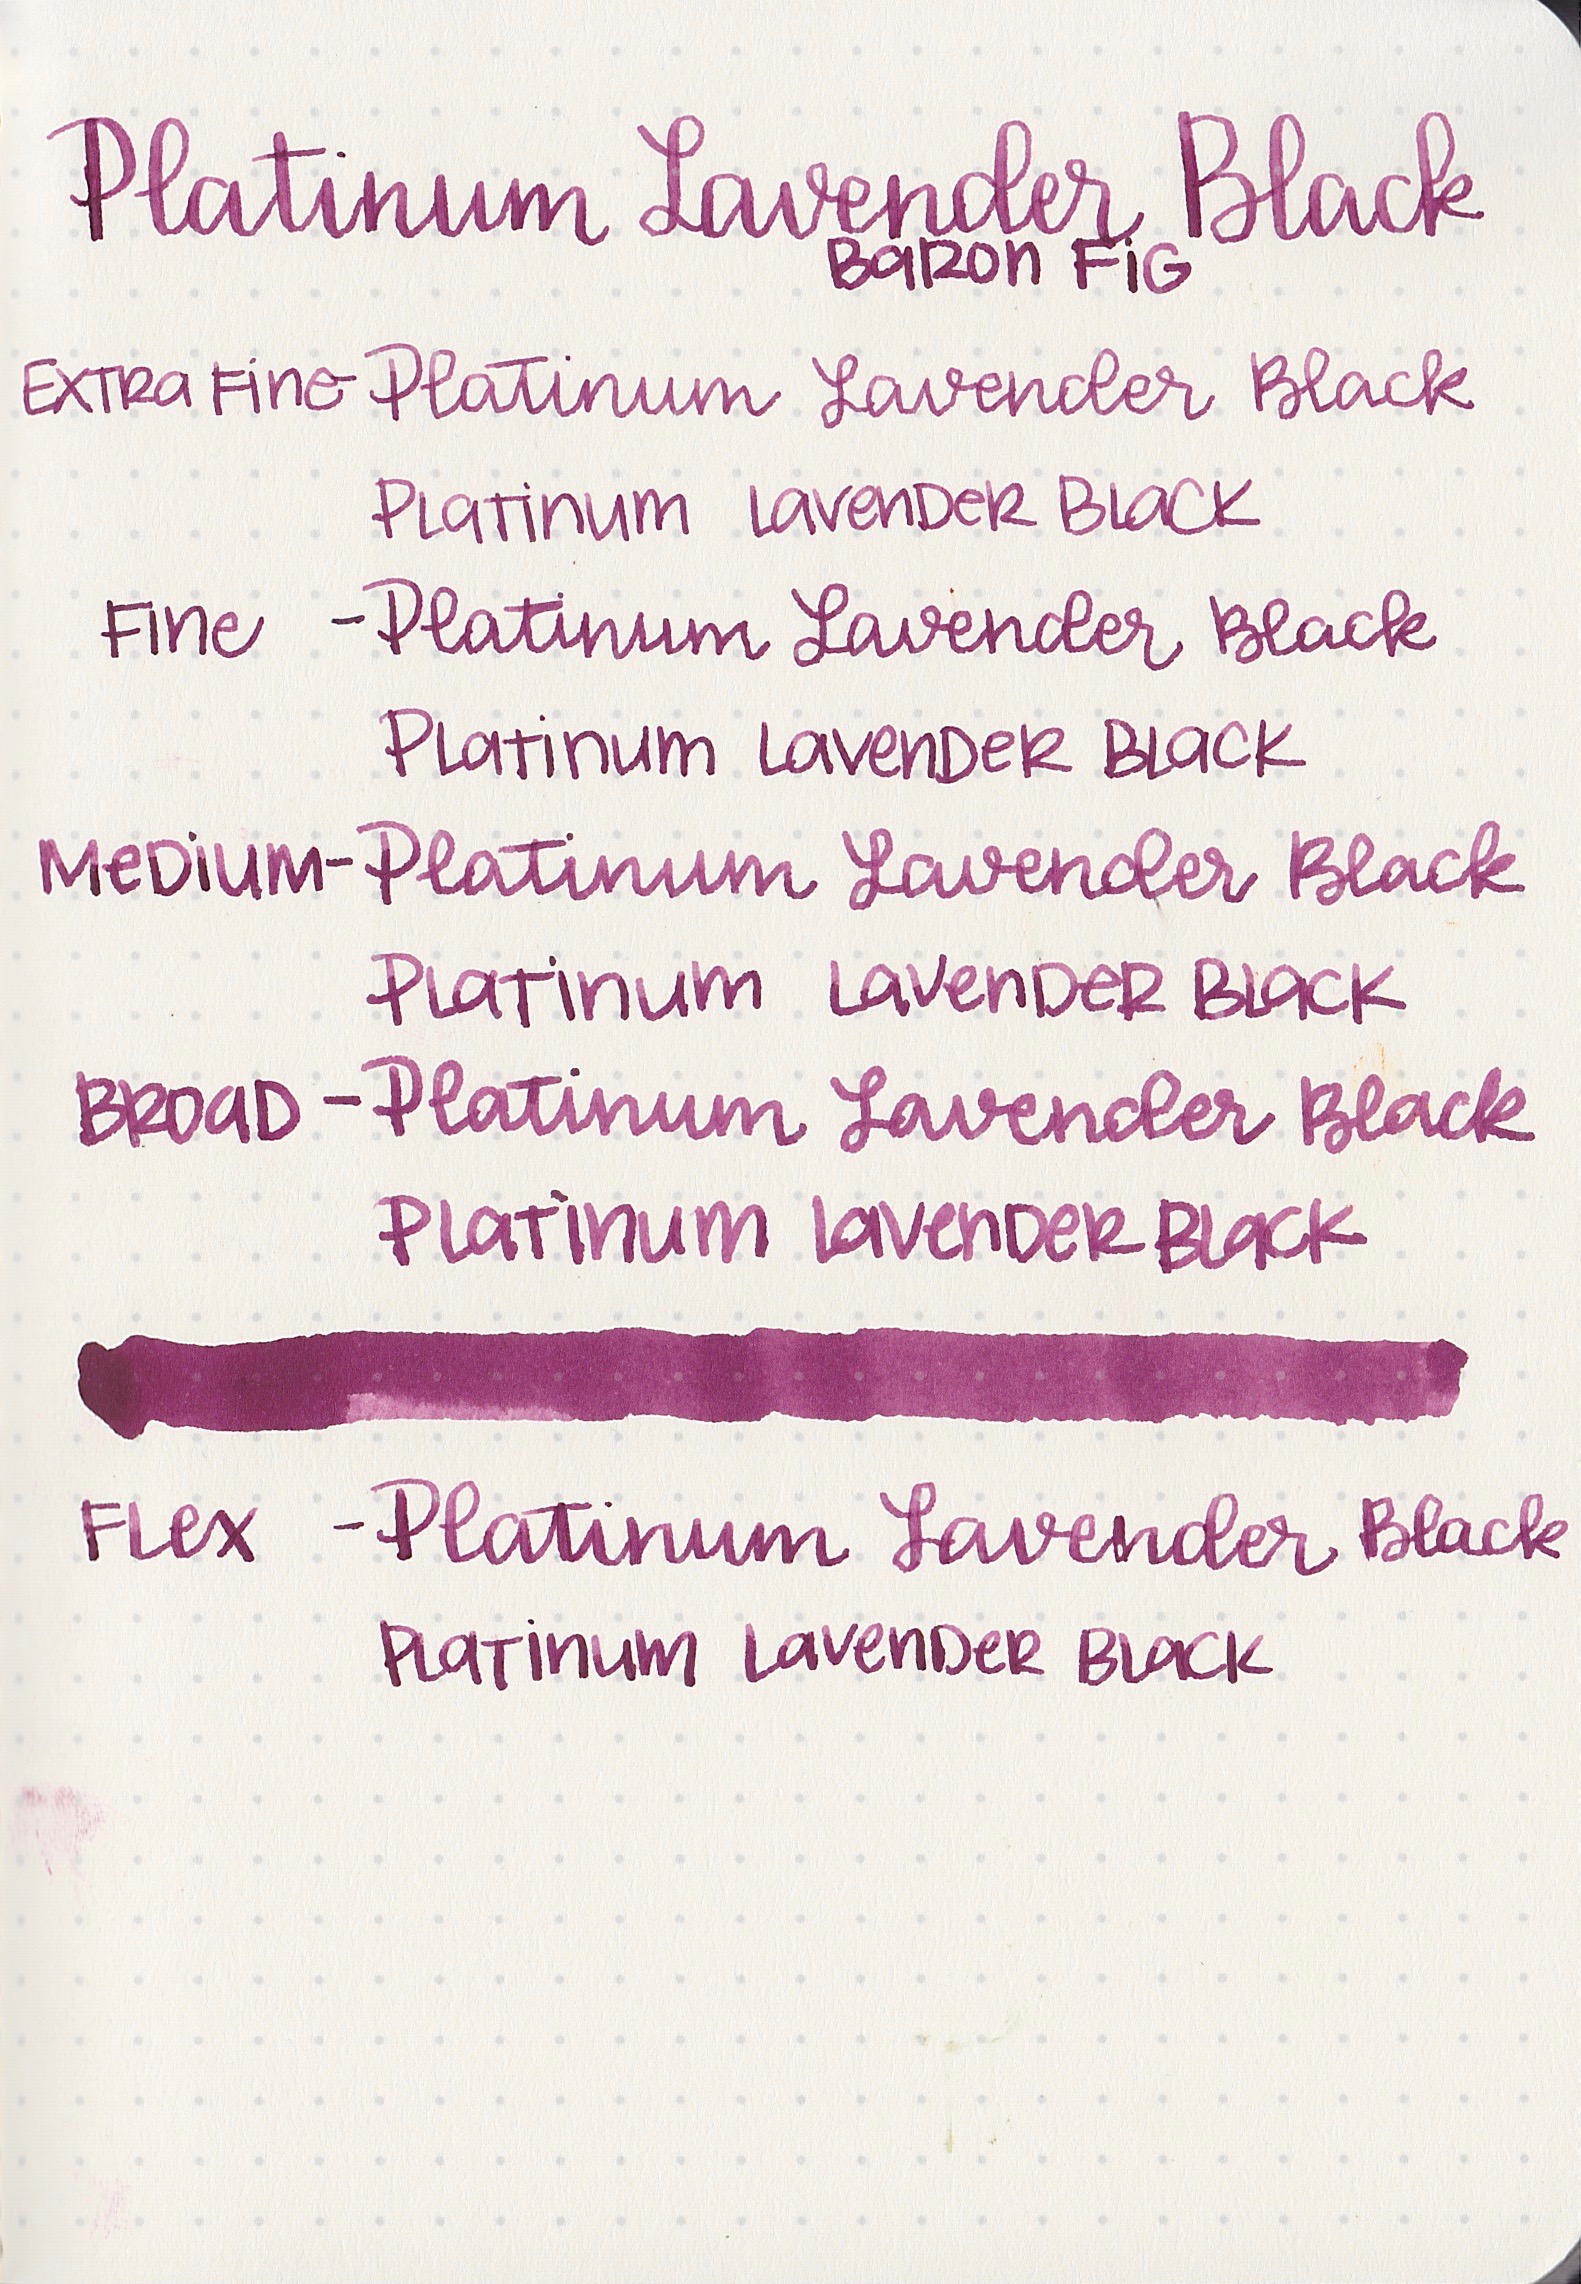 Platinum Lavender Black
Baron Fig
Extra Fine - Platinum Lavender Black
Platinum Lavender Black
Fine - Platinum Lavender Black
Platinum Lavender Black
Medium - Platinum Lavender Black
Platinum Lavender Black
Broad - Platinum Lavender Black
Platinum Lavender Black
Flex - Platinum Lavender Black
Platinum Lavender Black